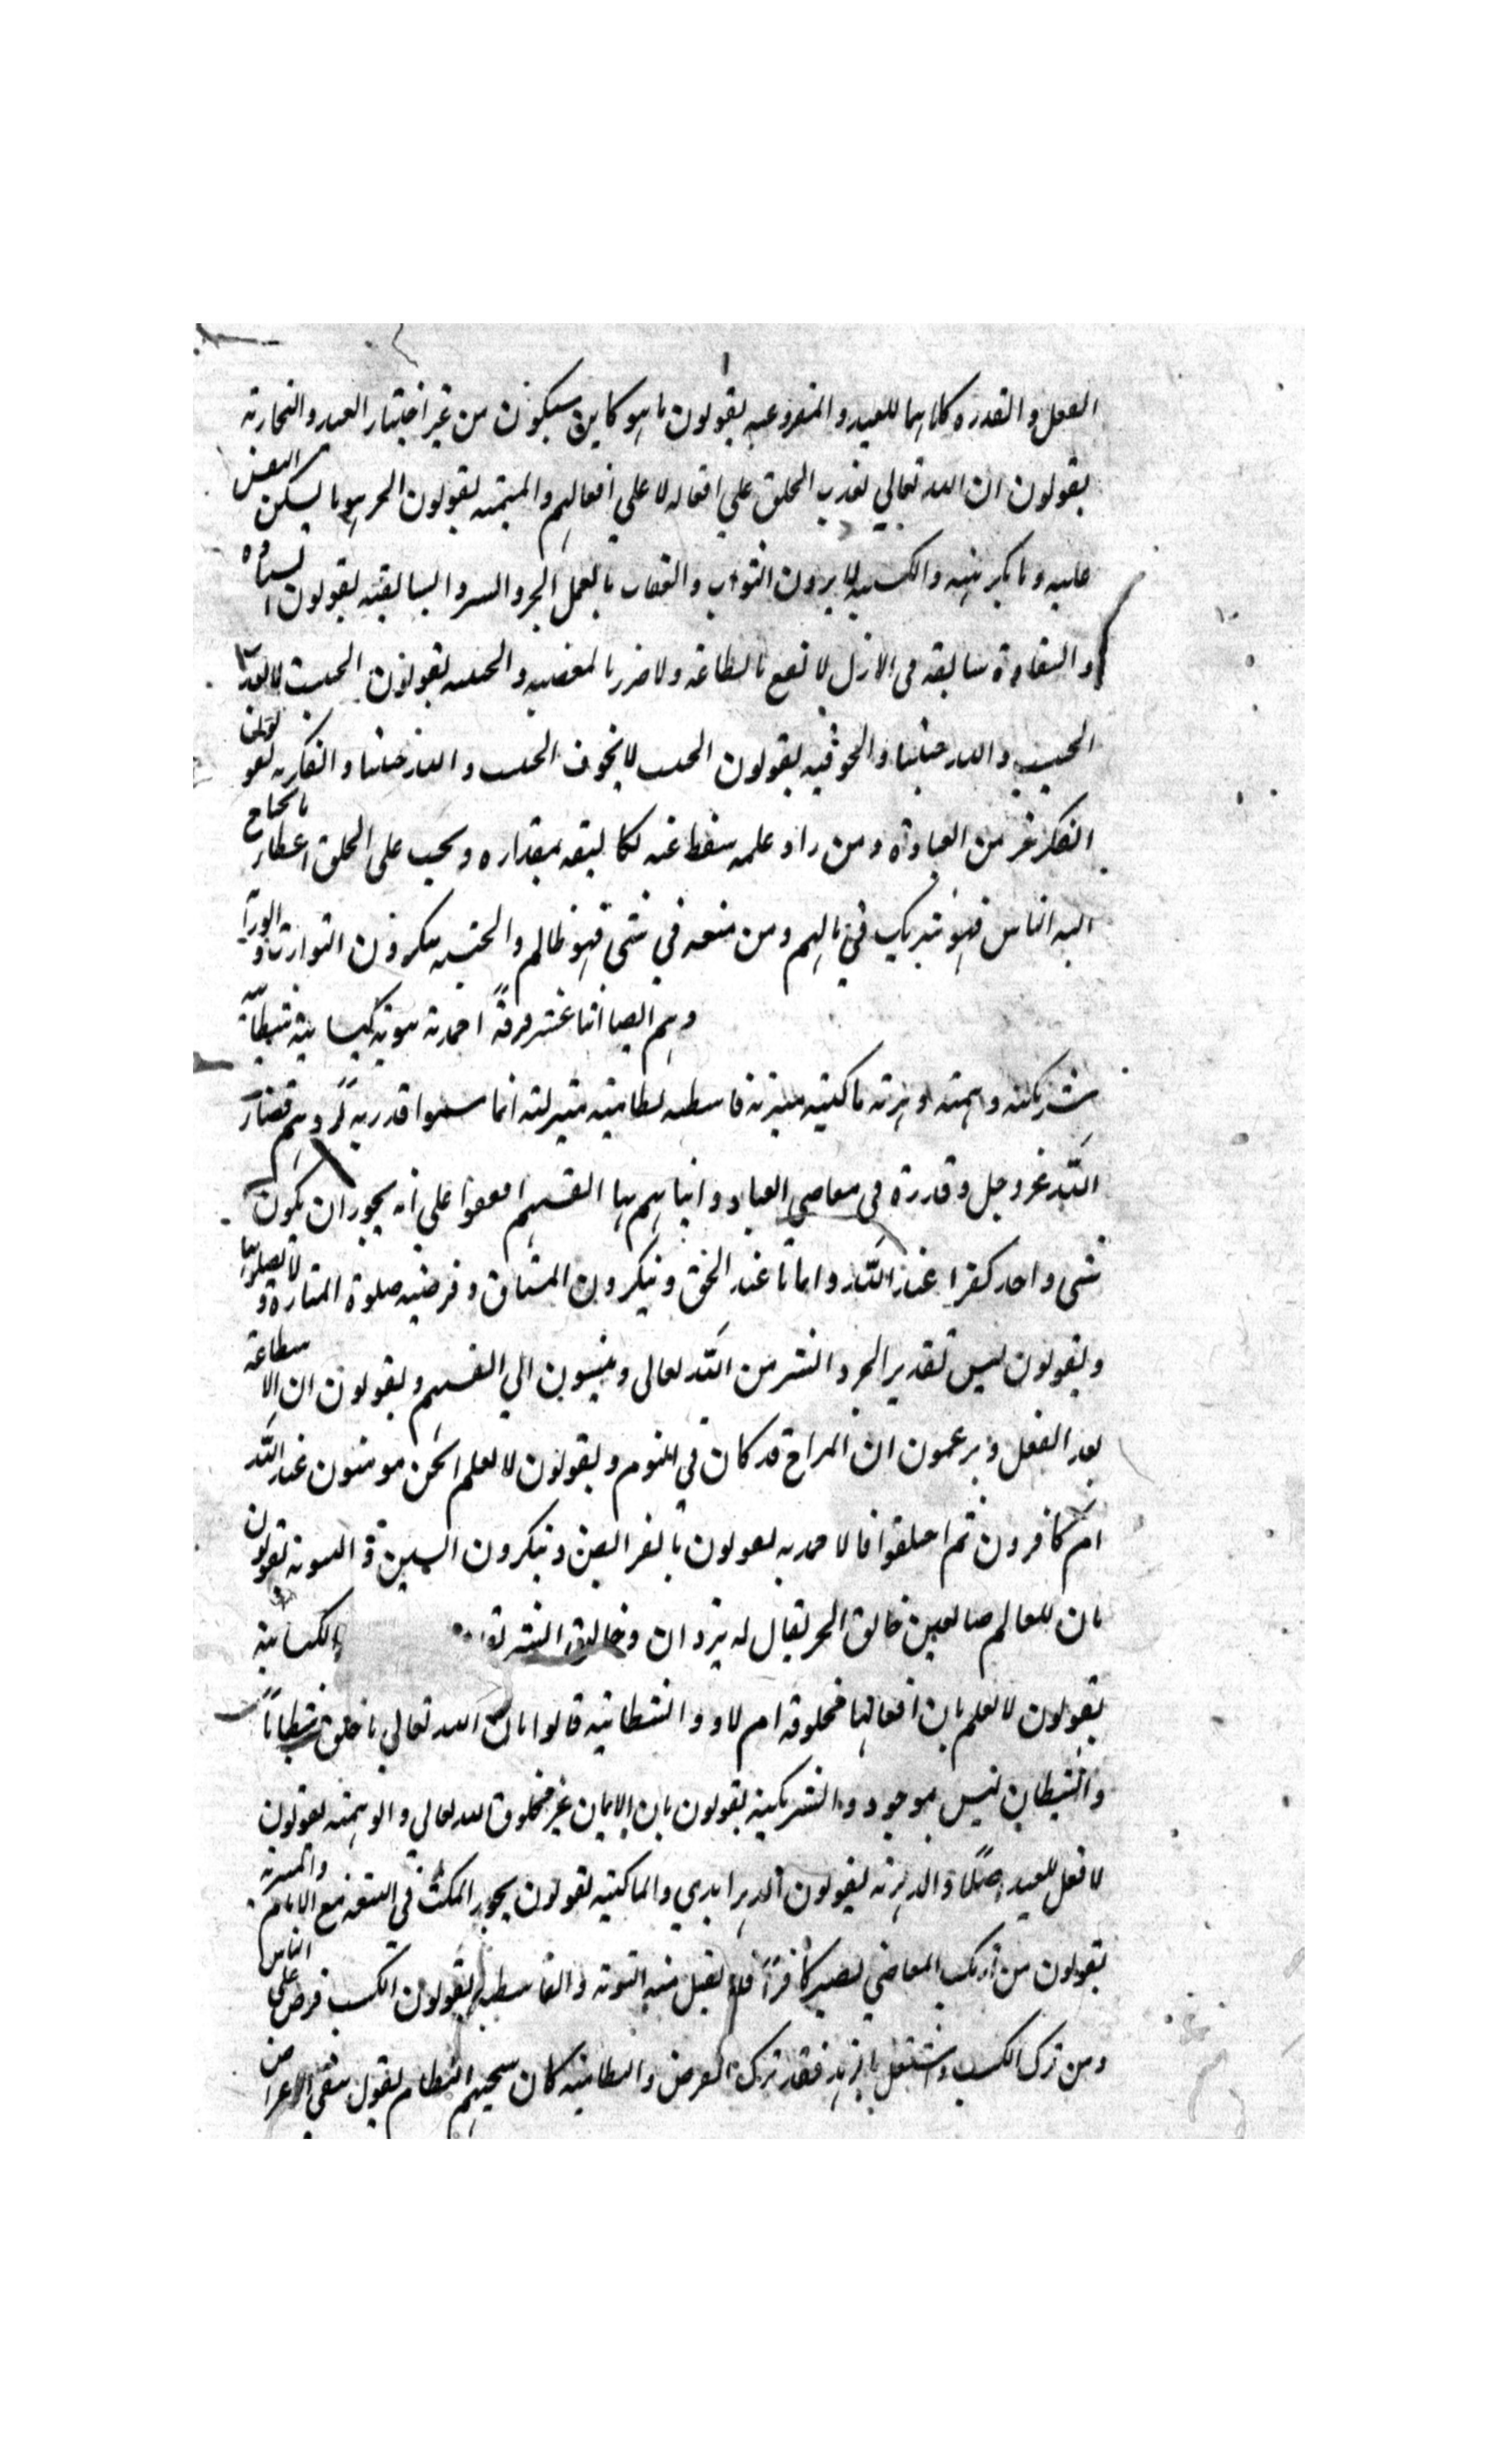 الفعل والقدره كلاهما للعبد والمفروعيه يقولون ما هو كاين سيكون من غير اختيار العبد والنجاريه
يقولون ان الله تعالي يعذب الخلق علي افعاله لا علي افعالهم والمتمنيه يقولون الخير هو ما يسكن النفس
عليه وما يكبر منه والكسبيه لا يرون الثواب والعقاب بالعمل الخير والشر والسابقيه يقولون السعادة
والشقاوة سابقه فى الازل لا تنفع بالطاعه ولا ضرر بالمعصيه والحبيه يقولون الحبيب لا يعذب
الحبيب والله حبيبنا والخوفيه يقولون الحبيب لا يخوف الحبيب والله حبيبنا والفكريه يقولون
الفكر خير من العبادة ومن زاد علمه سقط عنه تكاليفه بمقداره ويجب على الخلق اعطاء ما يحتاج
اليه الناس فهو شريك في مالهم ومن منعه في شئ فهو ظالم والحسبيه ينكرون التوارث و
وهم ايضا اثنا عشر فرقةً احمدية ثنوية كيسانية شيطانية
شريكية وهمية دهرية ناكثية متبرية قاسطية نظامية منزلية انما سموا قدرية لردهم قضاء
الله عز وجل وقدرة فى معاصي العباد واثباتهم بها انفسهم اتفقوا علي انه يجوز ان يكون
شئ واحد كفرا عند الله وايمانا عند الخلق وينكرون الميثاق وفرضيه صلوة الجنازة و
ويقولون ليس تقدير الخير والشر من الله تعالى وينسبون الي انفسهم ويقولون ان الاستطاعة
بعد الفعل ويزعمون ان المعراج قد كان في النوم ويقولون لا نعلم انحن مومنون عند الله
ام كافرون ثم اختلفوا فالاحمديه يقولون بالفرايض وينكرون السنن والثنوية يقولون
بان للعالم صانعين خالق الخير يقال له يزدان وخالق الشر والكيسانية
يقولون لا نعلم بان افعالنا مخلوقة ام لا والشيطانية قالوا بان الله تعالي ما خلق شيطاناً
والشيطان ليس بموجود والشريكية يقولون بان الايمان غير مخلوق لله تعالي والوهمية يقولون
لا فعل للعبد اصلاً والدهرية يقولون الدهر ابدي والناكثية يقولون يجوز المكث في البيعة مع الامام والمتبرية
يقولون من ارتكب المعاصي يصير كافراً فلا يقبل منه التوبة والقاسطية يقولون الكسب فرض علي الناس
ومن ترك الكسب واشتغل بالزهد فقد ترك الفرض والنظامية كان شيخهم النظام يقول بنفي الاعراض